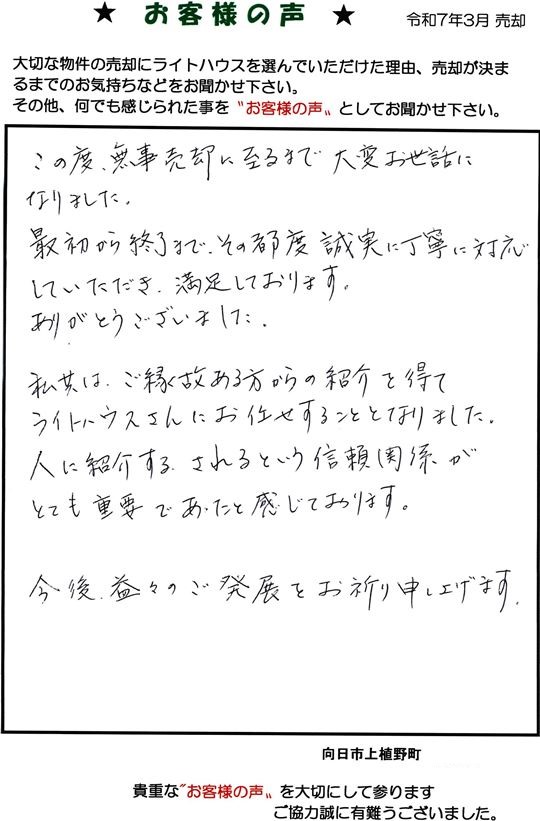 ★ お客様の声 ★
令和7年3月 売却
大切な物件の売却にライトハウスを選んでいただけた理由、売却が決ま
るまでのお気持ちなどをお聞かせ下さい。
その他、何でも感じられた事を〝お客様の声〟としてお聞かせ下さい。
この度、無事売却に至るまで 大変お世話に
なりました。
最初から終了まで、その都度 誠実に丁寧に対応
していただき、満足しております。
ありがとうございました。
私共は、ご縁故ある方からの紹介を得て
ライトハウスさんにお任せすることとなりました。
人に紹介する、されるという信頼関係が
とても重要であったと感じております。
今後、益々のご発展をお祈り申し上げます。
向日市上植野町
貴重な〝お客様の声〟を大切にして参ります
ご協力誠に有難うございました。